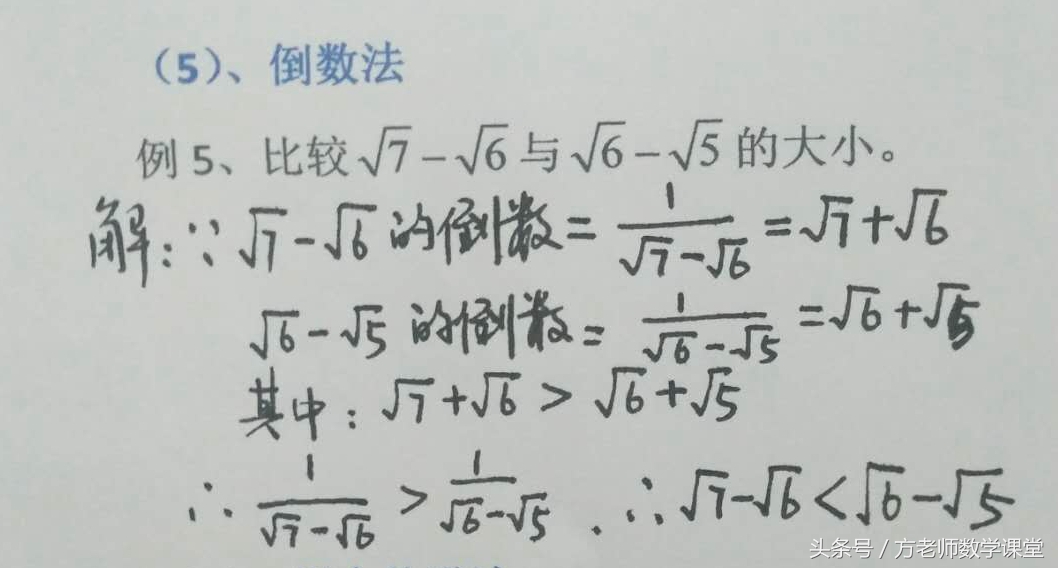 （5）、倒数法
例 5、比较√7－√6 与 √6－√5 的大小。
解:∵ √7－√6 的倒数 = 1/(√7－√6) = √7＋√6
√6－√5 的倒数 = 1/(√6－√5) = √6＋√5
其中: √7＋√6 > √6＋√5
∴ 1/(√7－√6) > 1/(√6－√5). ∴ √7－√6 < √6－√5
头条号 / 方老师数学课堂